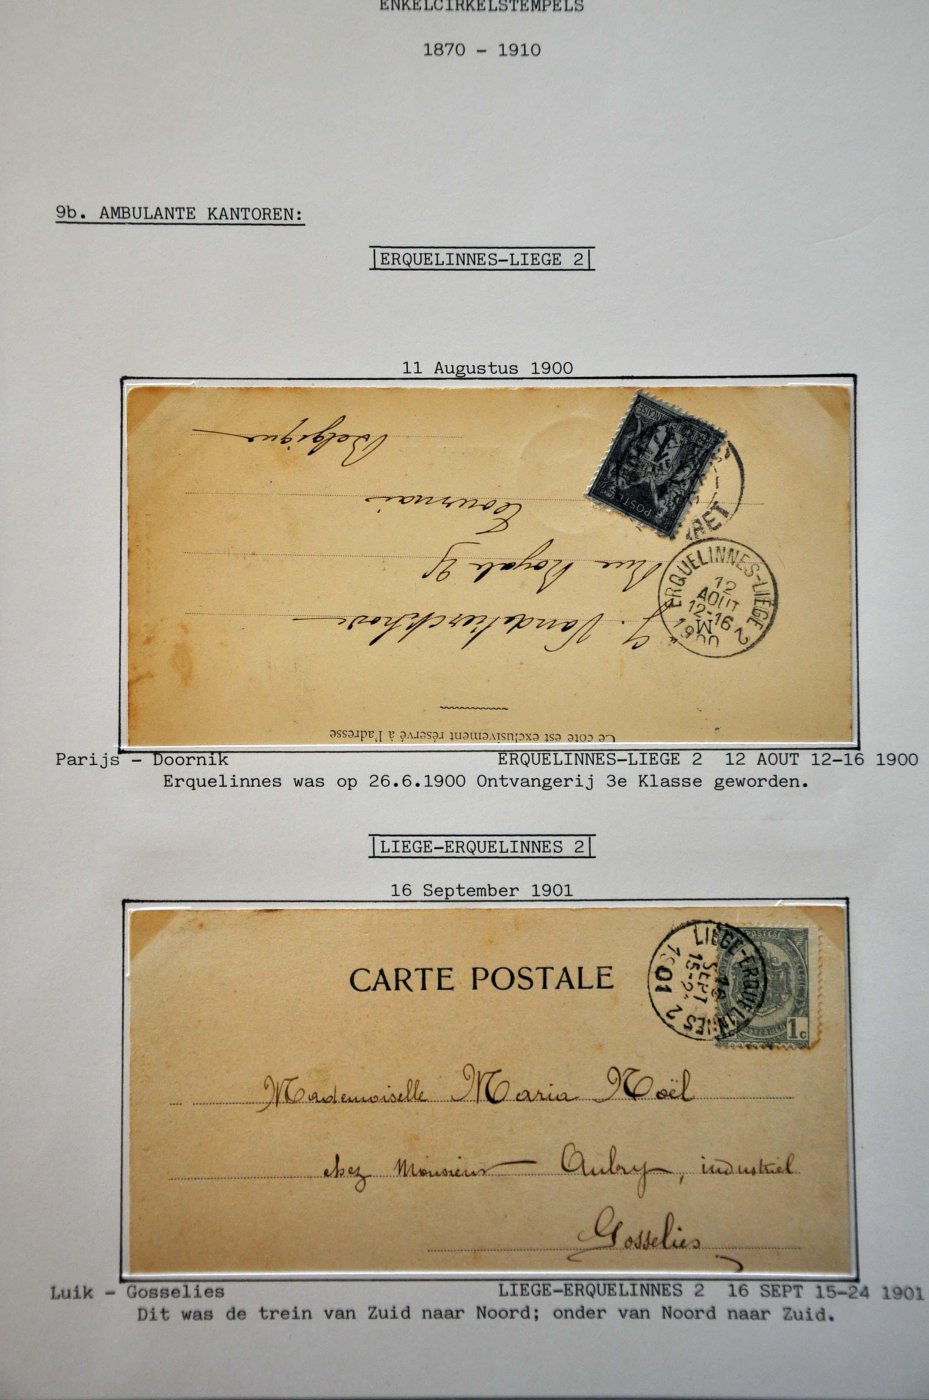 ENKELCIRKELSTEMPELS
1870 - 1910
9b. AMBULANTE KANTOREN:
ERQUELINNES-LIEGE 2
11 Augustus 1900
Ce côté est exclusivement réservé à l'adresse
Rue Royale
Tournai
Belgique
POSTES
ERQUELINNES-LIÈGE 2
12
AOUT
12-16
1900
Parijs - Doornik
ERQUELINNES-LIEGE 2 12 AOUT 12-16 1900
Erquelinnes was op 26.6.1900 Ontvangerij 3e Klasse geworden.
LIEGE-ERQUELINNES 2
16 September 1901
CARTE POSTALE
LIÈGE-ERQUELINNES 2
16
SEPT
1901
1c
Mademoiselle Maria Noël
chez Monsieur Aubry, industriel
Gosselies
Luik - Gosselies
LIEGE-ERQUELINNES 2 16 SEPT 15-24 1901
Dit was de trein van Zuid naar Noord; onder van Noord naar Zuid.